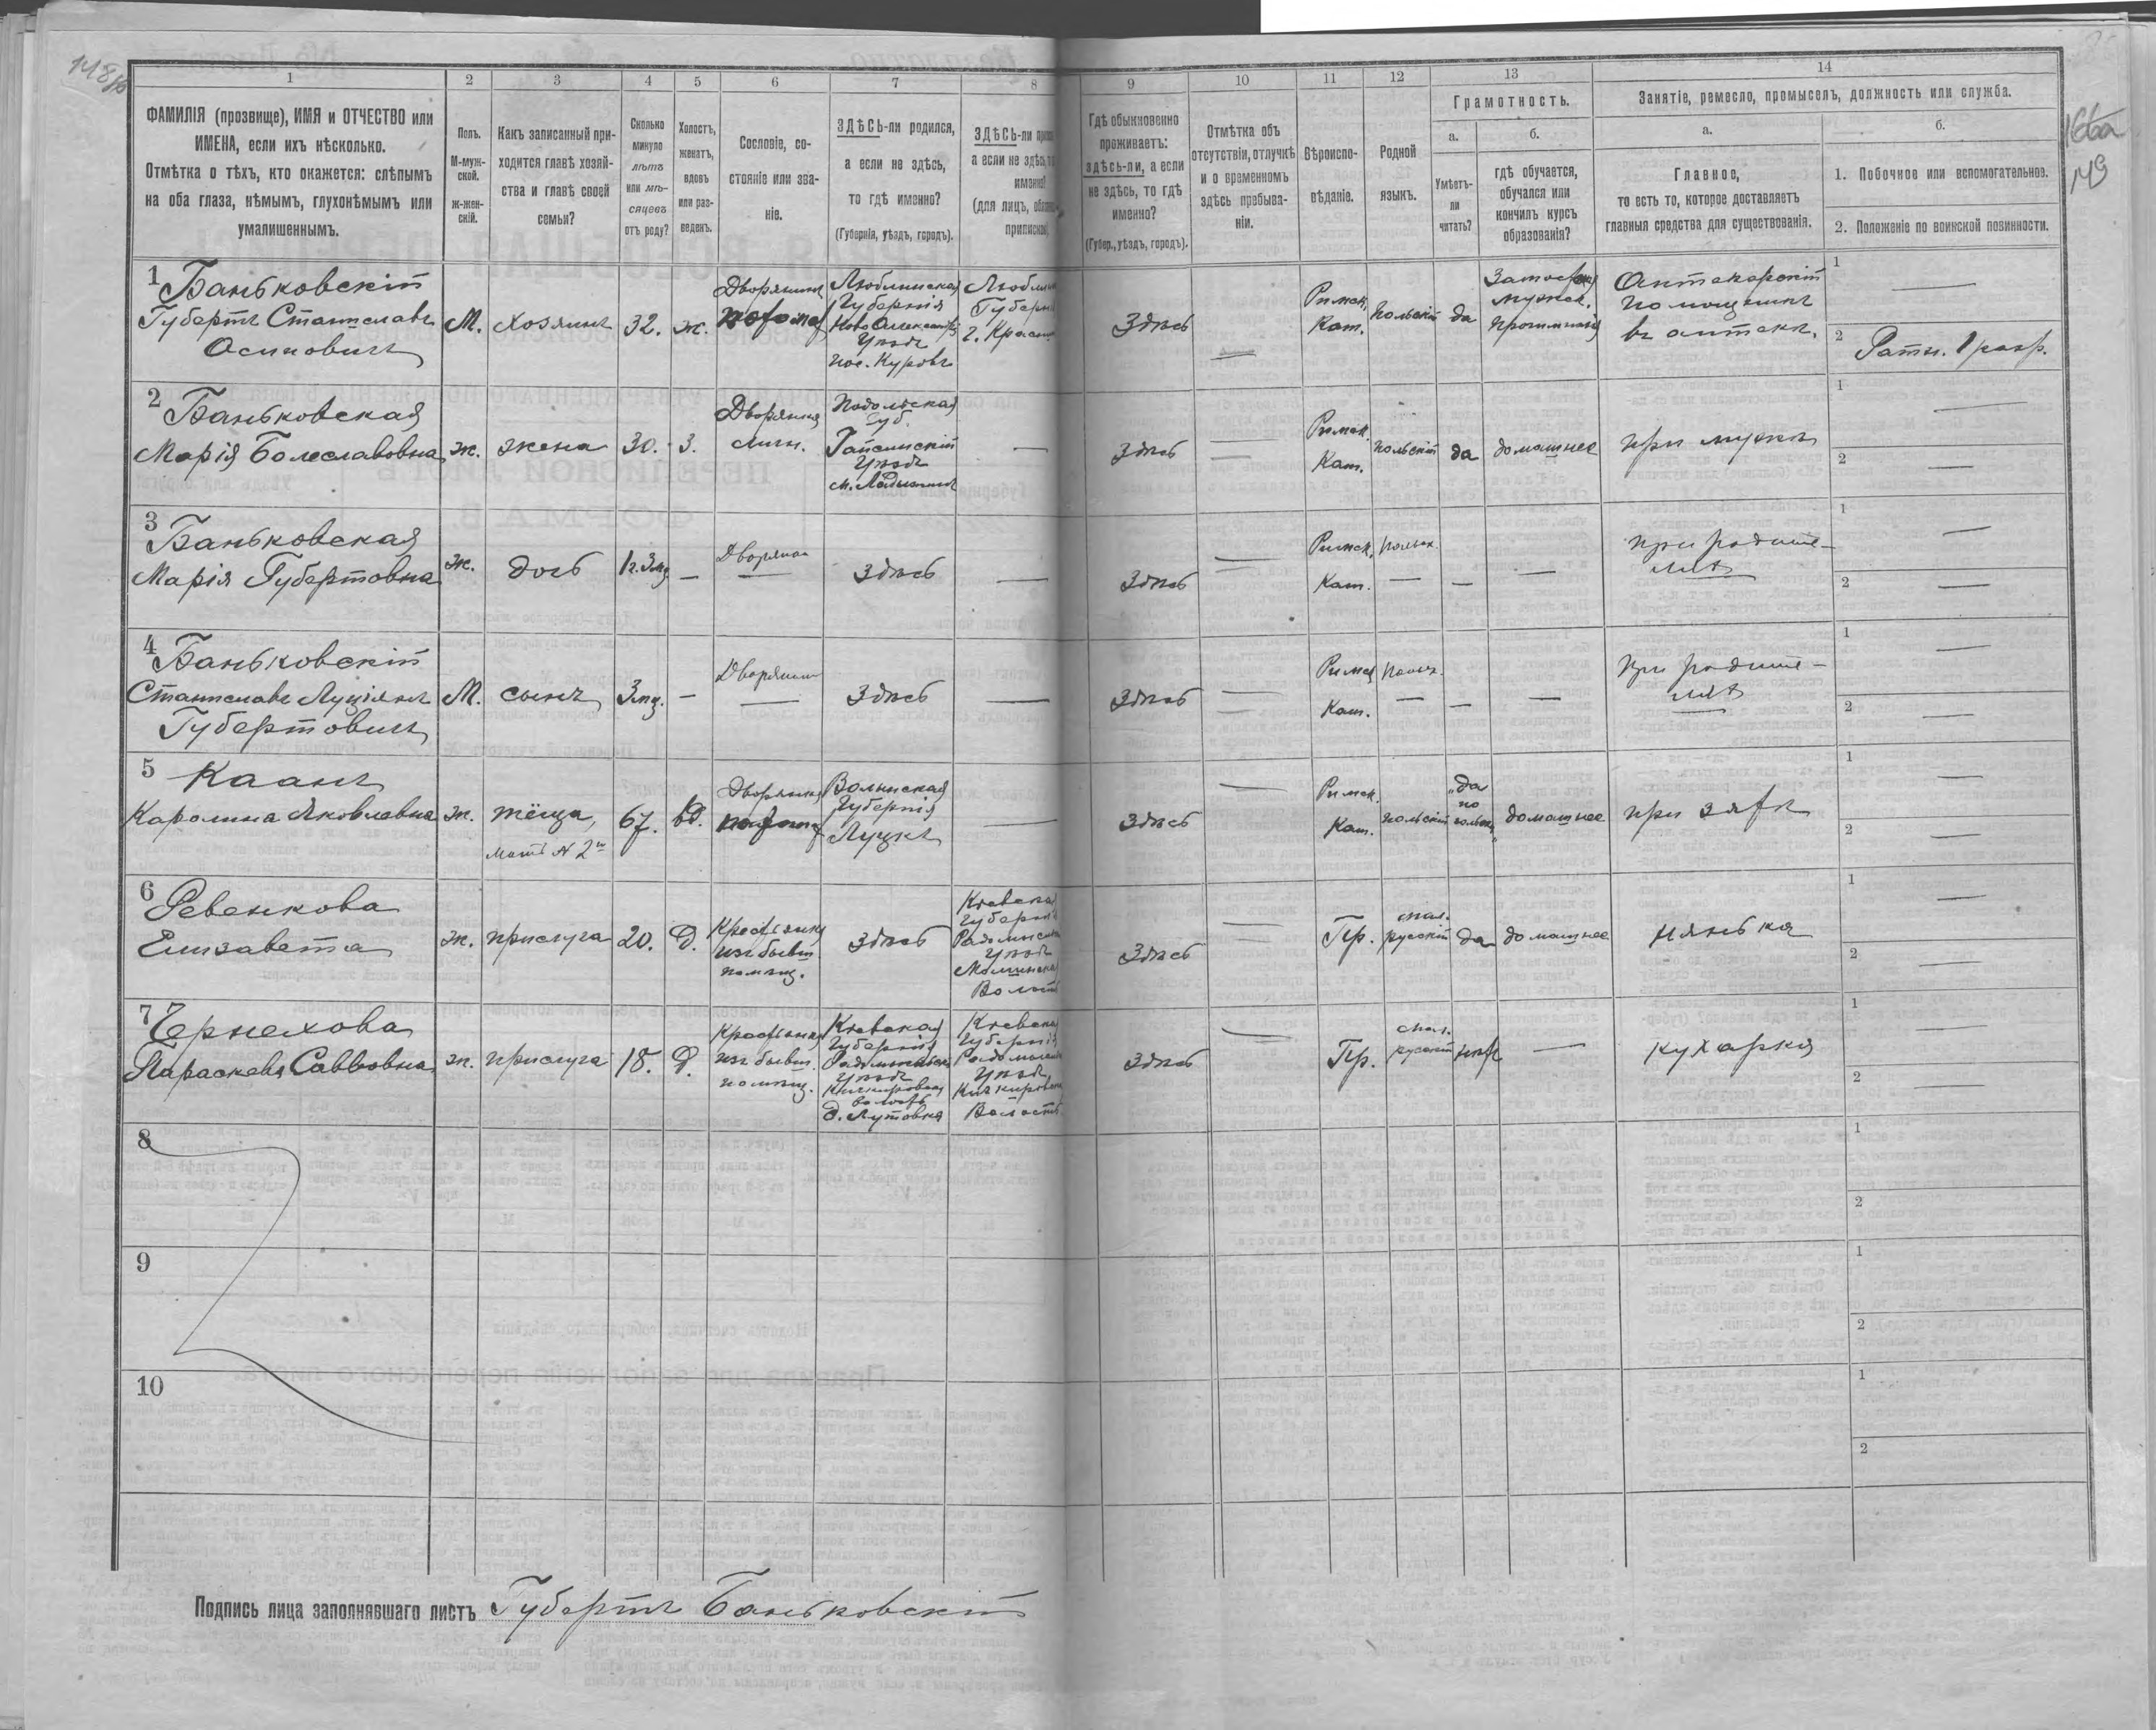 1
ФАМИЛІЯ (прозвище), ИМЯ и ОТЧЕСТВО или
ИМЕНА, если ихъ нѣсколько.
Отмѣтка о тѣхъ, кто окажется: слѣпымъ
на оба глаза, нѣмымъ, глухонѣмымъ или
умалишеннымъ.
2
Полъ.
М-муж-
ской.
ж-жен-
скій.
3
Какъ записанный при-
ходится главѣ хозяй-
ства и главѣ своей
семьи?
4
Сколько
минуло
лѣтъ
или мѣ-
сяцевъ
отъ роду?
5
Холостъ,
женатъ,
вдовъ
или раз-
веденъ.
6
Сословіе, со-
стояніе или зва-
ніе.
7
ЗДѢСЬ-ли родился,
а если не здѣсь,
то гдѣ именно?
(Губернія, уѣздъ, городъ).
8
ЗДѢСЬ-ли
а если не здѣсь,
именно?
(для лицъ,
9
Гдѣ обыкновенно
проживаетъ:
здѣсь-ли, а если
не здѣсь, то гдѣ
именно?
(Губер., уѣздъ, городъ).
10
Отмѣтка объ
отсутствіи, отлучкѣ
и о временномъ
здѣсь пребыва-
ніи.
11
Вѣроиспо-
вѣданіе.
12
Родной
языкъ.
13
Грамотность.
а.
Умѣетъ-
ли
читать?
б.
гдѣ обучается,
обучался или
кончилъ курсъ
образованія?
14
Занятіе, ремесло, промыселъ, должность или служба.
а.
Главное,
то есть то, которое доставляетъ
главныя средства для существованія.
б.
1. Побочное или вспомогательное.
2. Положеніе по воинской повинности.
1
Баньковскій
Губертъ Станиславъ
Осиповичъ
М.
хозяинъ
32.
ж.
Дворянинъ
Люблинская
Губернія
Уѣздъ
пос. Куровъ
Здѣсь
Римск.
Кат.
польскій
да
мужск.
Аптекарскій
помощникъ
въ аптекѣ.
1
2
Ратн. 1 разр.
2
Баньковская
Марія Болеславовна
ж.
жена
30.
З.
Дворянка
личн.
Подольская
Губ.
Гайсинскій
Уѣздъ
Здѣсь
Римск.
Кат.
польскій
да
домашнее
при мужѣ
1
2
3
Баньковская
Марія Губертовна
ж.
дочь
Дворянка
Здѣсь
Здѣсь
Римск.
Кат.
польск.
при родите-
ляхъ
1
2
4
Баньковскій
Станиславъ Луціянъ
Губертовичъ
М.
сынъ
3 мц.
Дворянинъ
Здѣсь
Здѣсь
Кат.
при родите-
ляхъ
1
2
5
Каанъ
Каролина Яковлевна
ж.
тёща,
мать № 2
67.
вд.
Дворянка
Волынская
Губернія
Луцкъ
Здѣсь
Римск.
Кат.
польскій
да
по
польск.
домашнее
при зятѣ
1
2
6
Ревенкова
Елизавета
ж.
прислуга
20.
Д.
Крестьянка
изъ бывш
помѣщ.
Здѣсь
Кіевская
Губернія
Уѣздъ
Здѣсь
Пр.
мал.
русскій
да
домашнее
нянька
1
2
7
Чернехова
Параскева Савовна
ж.
прислуга
18.
Д.
Крестьянка
изъ бывш.
помѣщ.
Кіевская
Губернія
Уѣздъ
волость
д. Лутовка
Кіевская
Губернія
Уѣздъ
Волость
Здѣсь
Пр.
мал.
русскій
нѣтъ
кухарка
1
2
8
1
2
9
1
2
10
1
2
Подпись лица заполнявшаго листъ Губертъ Баньковскій